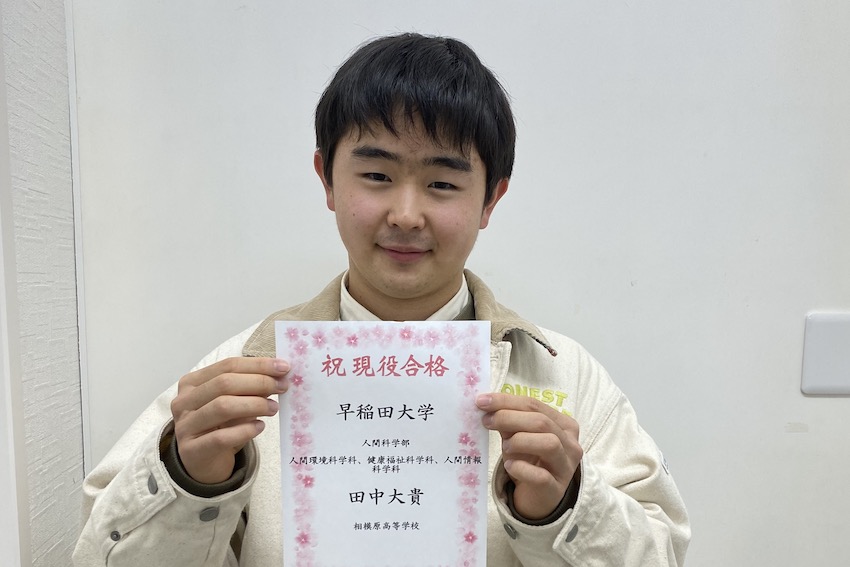 祝 現役合格
早稲田大学
人間科学部
人間環境科学科、健康福祉科学科、人間情報
科学科
田中大貴
相模原高等学校
QUEST